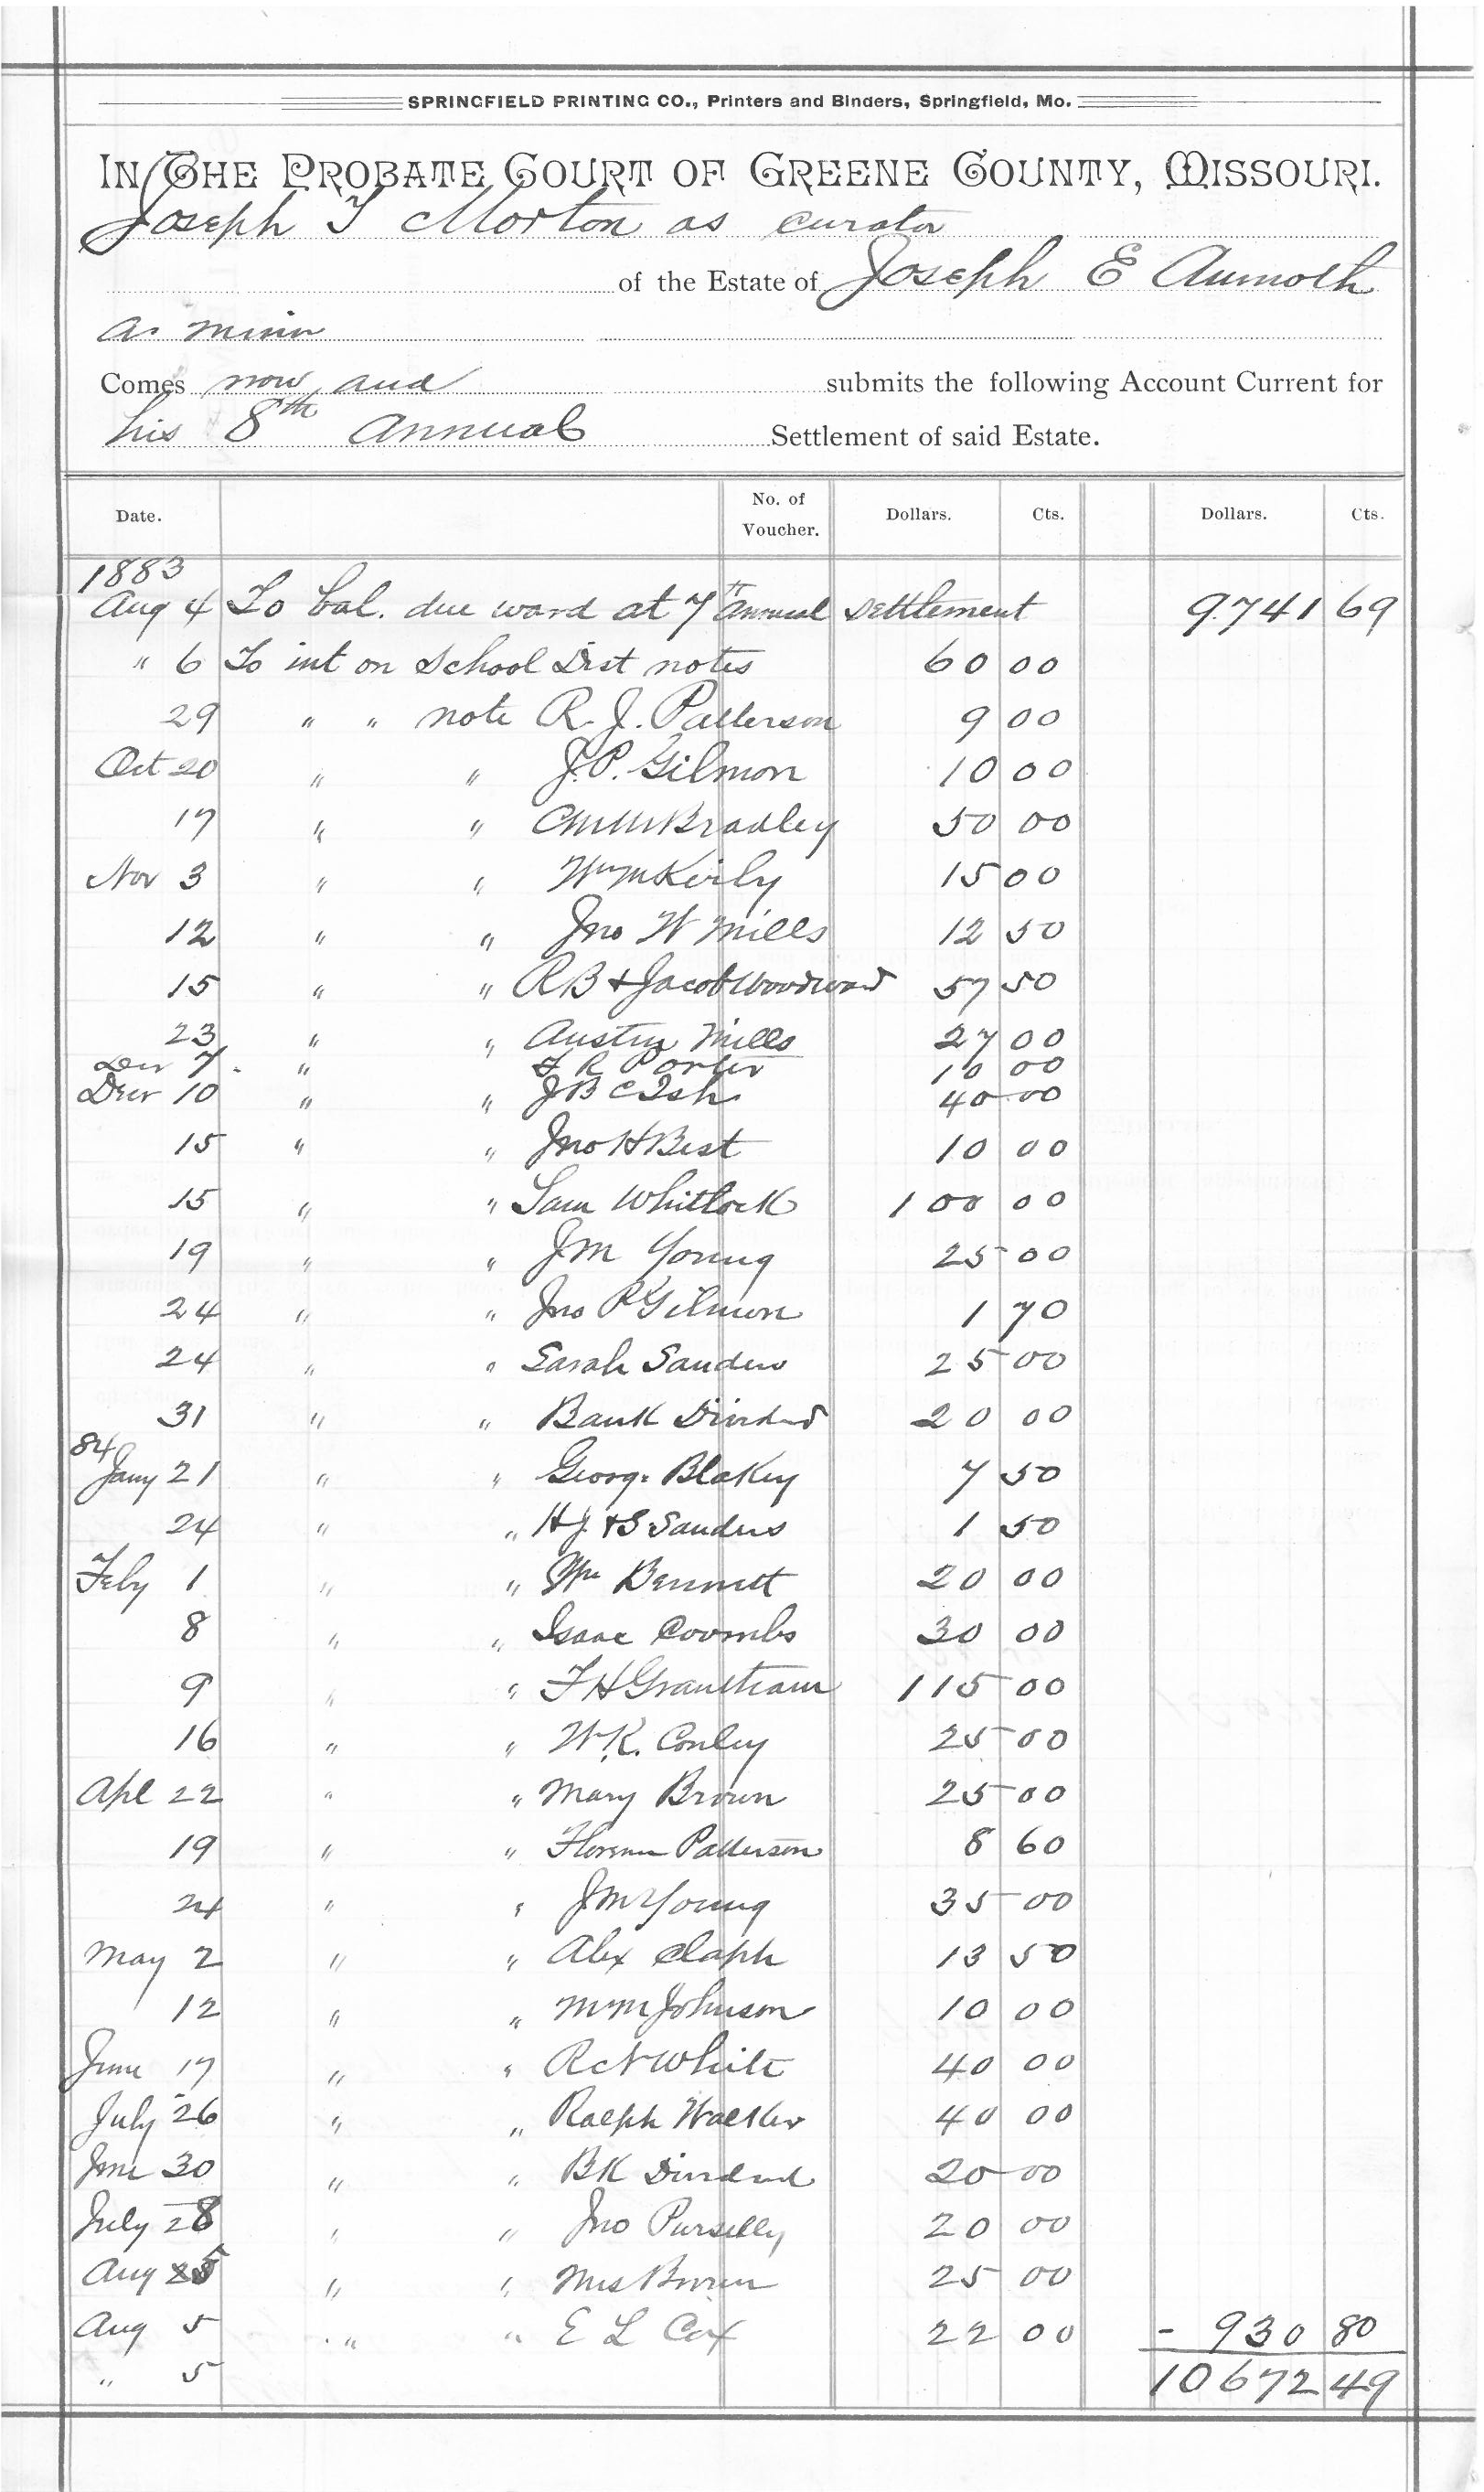 SPRINGFIELD PRINTING CO., Printers and Binders, Springfield, Mo.
IN THE PROBATE COURT OF GREENE COUNTY, MISSOURI.
Joseph T Morton as curator
of the Estate of Joseph E Aumoth
a minor
Comes now and submits the following Account Current for
his 8th annual Settlement of said Estate.
Date. No. of Voucher. Dollars. Cts. Dollars. Cts.
1883
Aug 4 To bal. due ward at 7th annual settlement 9741 69
" 6 To int on School Dist notes 60 00
29 " " note R. J. Patterson 9 00
Oct 20 " " J. P. Gilmon 10 00
17 " " Bradley 50 00
Nov 3 " " Wm M Kerby 15 00
12 " " Jno W Mills 12 50
15 " " R B & Jacob Woodward 57 50
23 " " Austin Mills 27 00
Dec 7 " F R Porter 10 00
Decr 10 " " J B C Ish 40 00
15 " " Jno H Best 10 00
15 " " Sam Whitlock 100 00
19 " " J M Young 25 00
24 " " Jno P Gilmon 1 70
24 " " Sarah Sanders 25 00
31 " " Bank Dividend 20 00
84
Jany 21 " " George Blakey 7 50
24 " " H J & S Sanders 1 50
Feby 1 " " Wm Bennett 20 00
8 " " Isaac Coombs 30 00
9 " " F H Grantham 115 00
16 " " W. K. Conley 25 00
Apl 22 " " Mary Brown 25 00
19 " " Florence Patterson 8 60
24 " " J M Young 35 00
May 2 " " Alex Claph 13 50
12 " " M M Johnson 10 00
June 17 " " R C N White 40 00
July 26 " " Ralph Walker 40 00
June 30 " " BK Dividend 20 00
July 28 " " Jno Purselly 20 00
Aug 5 " " Mrs Brown 25 00
Aug 5 " " E L Cox 22 00 - 930 80
" 5 10672 49